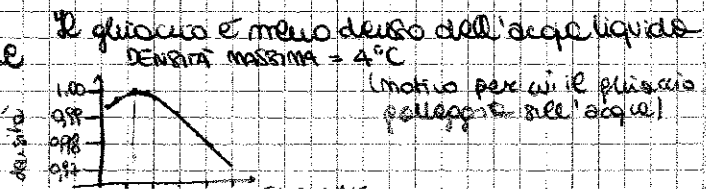 Il ghiaccio è meno denso dell'acqua liquida
DENSITÀ MASSIMA = 4°C
(motivo per cui il ghiaccio
galleggia sull'acqua)
densità
1.00
0,99
0,98
0,97